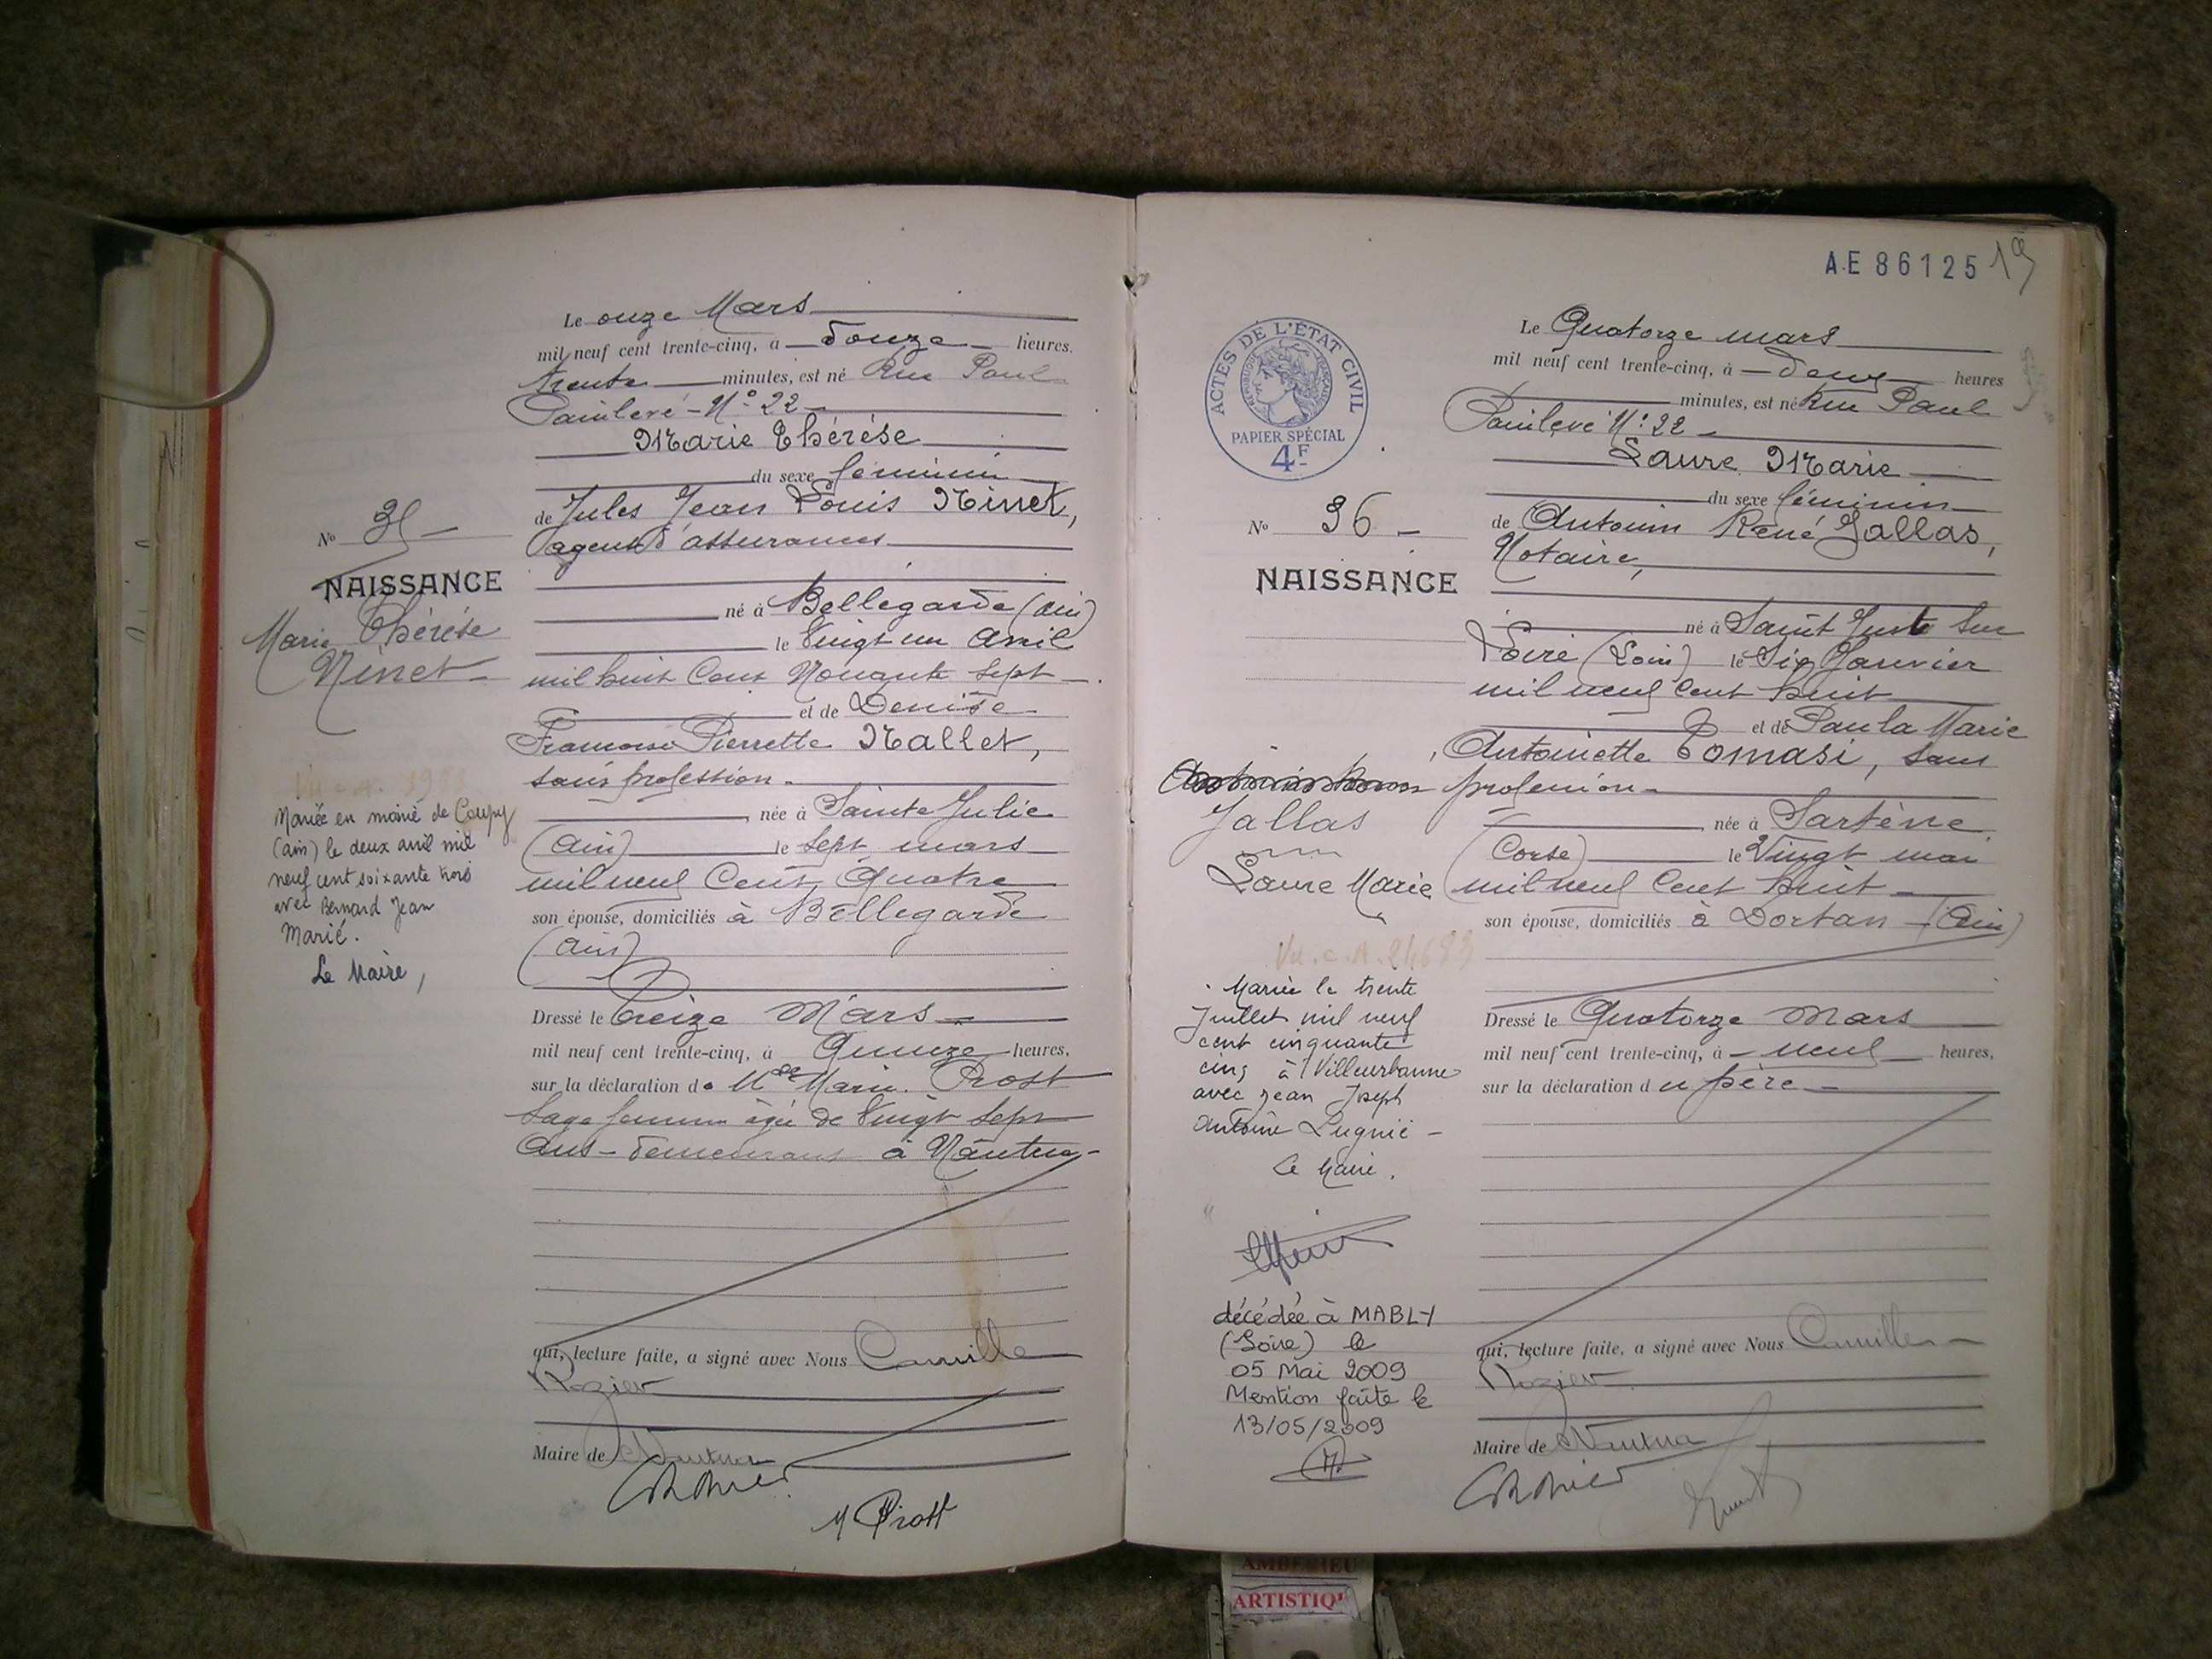 Le onze Mars
mil neuf cent trente-cinq, à douze heures.
trente minutes, est né Rue Paul
Painlevé - N° 22 -
Marie Thérèse
du sexe féminin
de Jules Jean Louis Ninet,
agent d'assurances
né à Bellegarde (Ain)
le Vingt un Avril
mil huit Cent Nonante sept
et de Denise
Françoise Pierrette Mallet,
sans profession -
née à Sainte Julie
(Ain) le sept mars
mil neuf Cent Quatre
son épouse, domiciliés à Bellegarde
(Ain)
Dressé le treize Mars
mil neuf cent trente-cinq, à Quinze heures,
sur la déclaration de Marie Prost
Sage femme âgée de Vingt Sept
Ans - demeurant à Nantua -
qui, lecture faite, a signé avec Nous Camille
Rozier
Maire de Nantua
M Prost
N° 35 -
NAISSANCE
Marie Thérèse
Ninet -
Mariée en mairie de Coupy
(Ain) le deux avril mil
neuf cent soixante trois
avec Bernard Jean
Marié.
Le Maire,
AE 86125
19
ACTES DE L'ÉTAT CIVIL
RÉPUBLIQUE FRANÇAISE
PAPIER SPÉCIAL
4F
Le Quatorze mars
mil neuf cent trente-cinq, à deux heures
minutes, est né Rue Paul
Painlevé N° 22 -
Laure Marie
du sexe féminin
de Antonin René Jallas,
Notaire,
né à Saint Just Sur
Loire (Loire) le Six Janvier
mil neuf Cent huit
et de Paula Marie
Antoinette Tomasi, sans
profession -
née à Sartène
(Corse) le Vingt mai
mil neuf Cent huit -
son épouse, domiciliés à Dortan (Ain)
Dressé le Quatorze Mars
mil neuf cent trente-cinq, à neuf heures,
sur la déclaration du père -
qui, lecture faite, a signé avec Nous Camille
Rozier
Maire de Nantua
N° 36 -
NAISSANCE
Jallas
Laure Marie
Vu. c. A.
Mariée le trente
Juillet mil neuf
cent cinquante
cinq à Villeurbanne
avec Jean Joseph
Antoine Lugnié -
Le Maire.
décédée à MABLY
(Loire) le
05 Mai 2009
Mention faite le
13/05/2009
AMBÉRIEU
ARTISTIQ